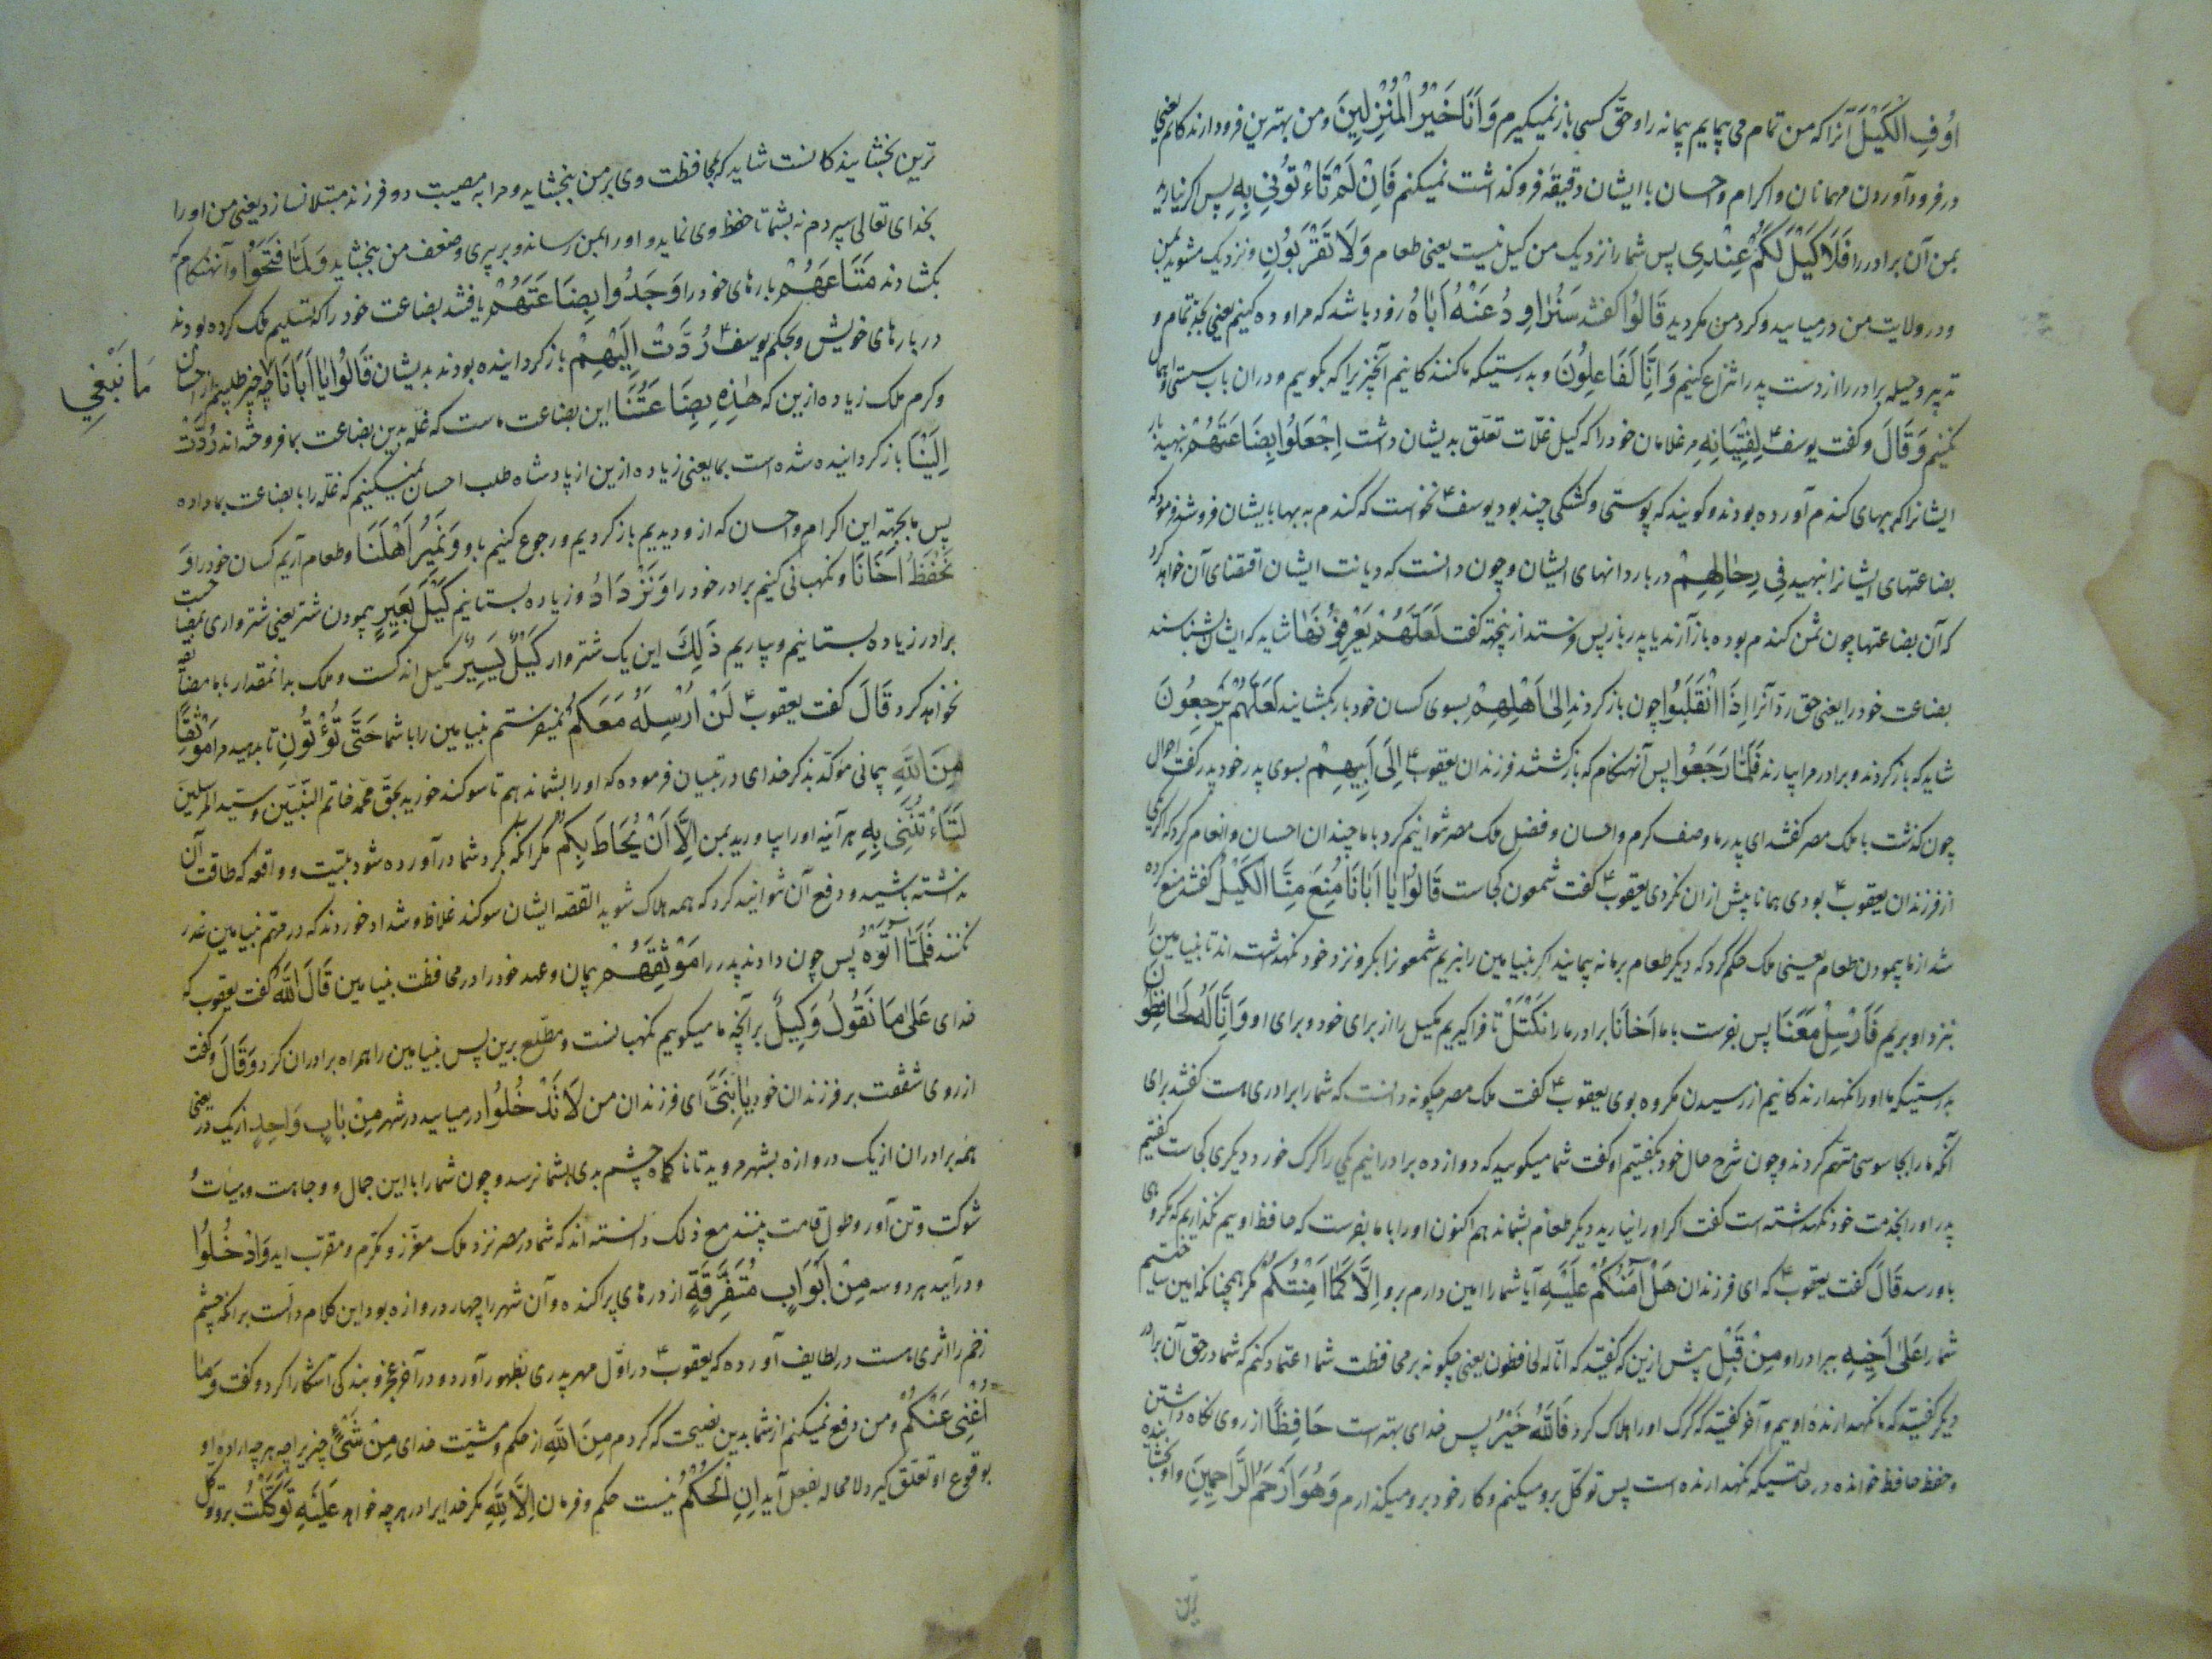 اُوفِ الْكَيْلَ آنرا که من تمام می پیمایم پیمانه را و حق کسی باز نمیگیرم وَاَنَا خَيْرُ الْمُنْزِلِينَ و من بهترین فرود ارندکانم یعنی
در فرود آوردن مهمانان و اکرام و احسان با ایشان دقیقه فروکذاشت نمیکنم فَاِنْ لَمْ تَاءْتُونِی بِهِ پس اکر نیارید
بمن آن برادر را فَلَا كَيْلَ لَكُمْ عِنْدِی پس شما را نزدیک من کیل نیست یعنی طعام وَلَا تَقْرَبُونِ و نزدیک مشوید بمن
و در ولایت من درمیایید و کرد من مکردید قَالُوا کفتند سَنُرَاوِدُ عَنْهُ اَبَاهُ زود باشد که مراوده کنیم یعنی بجد تمام و
تدبیر و حیله برادر را از دست پدر انتزاع کنیم وَاِنَّا لَفَاعِلُونَ و بدرستیکه ما کنندکانیم آنچیز را که بکوییم و دران باب سستی و اهمال
نکنیم وَقَالَ و کفت یوسف ع لِفِتْيَانِهِ مر غلامان خود را که کیل غلات تعلق بدیشان داشت اِجْعَلُوا بِضَاعَتَهُمْ بنهید بار
ایشانرا که ببهای کندم آورده بودند و کویند که پوستی و کشکی چند بود یوسف ع نخواست که کندم به بها با ایشان فروشد فرمود که
بضاعتهای ایشانرا بنهید فِی رِحَالِهِمْ در باردانهای ایشان و چون دانست که دیانت ایشان اقتضای آن خواهد کرد
که آن بضاعتها چون ثمن کندم بوده باز آرند یا پدر باز پس فرستد ازینجهته کفت لَعَلَّهُمْ يَعْرِفُونَهَا شاید که ایشان بشناسند
بضاعت خود را یعنی حق رد آنرا اِذَا انْقَلَبُوا چون باز کردند اِلٰی اَهْلِهِمْ بسوی کسان خود بار بکشایند لَعَلَّهُمْ يَرْجِعُونَ
شاید که باز کردند و برادر مرا بیارند فَلَمَّا رَجَعُوا پس آنهنکام که باز کشتند فرزندان یعقوب ع اِلَی اَبِيهِمْ بسوی پدر خود پدر کفت احوال
چون کذشت با ملک مصر کفتند ای پدر ما وصف کرم و احسان و فضل ملک مصر نتوانیم کرد با ما چندان احسان و انعام کرد که اکر یکی
از فرزندان یعقوب ع بودی همانا بیش ازان نکردی یعقوب ع کفت شمعون کجاست قَالُوا يَا اَبَانَا مُنِعَ مِنَّا الْكَيْلُ کفتند منع کرده
شد از ما پیمودن طعام یعنی ملک حکم کرد که دیکر طعام بر ما نه پیمایند اکر بنیامین را نبریم شمعون را بکرو نزد خود نکهداشته اند تا بنیامین را
بنزد او بریم فَاَرْسِلْ مَعَنَا پس بفرست با ما اَخَانَا برادر ما را نَكْتَلْ تا فرا کیریم بکیل را از برای خود و برای او وَاِنَّا لَهُ لَحَافِظُونَ
بدرستیکه ما او را نکهدارندکانیم از رسیدن مکروه بوی یعقوب ع کفت ملک مصر چکونه دانست که شما را برادری هست کفتند برای
آنکه ما را بجاسوسی متهم کردند و چون شرح حال خود بکفتیم او کفت شما میکویید که دوازده برادرانیم یکی را کرک خورد دیکری کجاست کفتیم
پدر او را بخدمت خود نکهداشته است کفت اکر او را نیارید دیکر طعام بشما ندهم اکنون او را با ما بفرست که حافظ اوییم نکذاریم که مکروهی
باو رسد قَالَ کفت یعقوب ع که ای فرزندان هَلْ آمَنُكُمْ عَلَيْهِ آیا شما را امین دارم برو اِلَّا كَمَا اَمِنْتُكُمْ مکر همچنانکه امین ساختم
شما را عَلٰی اَخِيهِ ببرادر او مِنْ قَبْلِ پیش ازین که کفتید که انا له لحافظون یعنی چکونه بر محافظت شما اعتماد کنم که شما در حق آن برادر
دیکر کفتید که ما نکهدارندهٔ اوییم و آخر کفتید که کرک او را هلاک کرد فَاللّٰهُ خَيْرٌ پس خدای بهتر است حَافِظًا از روی نکاه داشتن
و حفظ حافظ خوانده در حالتیکه نکهدارنده است پس توکل برو میکنم و کار خود برو میکذارم وَهُوَ اَرْحَمُ الرَّاحِمِينَ و او بخشاینده
ترین
ترین بخشایندکانست شاید که بمحافظت وی بر من ببخشاید و مرا به مصیبت دو فرزند مبتلا نسازد یعنی من او را
بخدای تعالی سپردم نه بشما تا حفظ وی نماید و او را بمن رساند و بر پیری و ضعف من ببخشاید وَلَمَّا فَتَحُوا و آنهنکام که
بکشادند مَتَاعَهُمْ بارهای خود را وَجَدُوا بِضَاعَتَهُمْ یافتند بضاعت خود را که تسلیم ملک کرده بودند
در بارهای خویش و بحکم یوسف ع رُدَّتْ اِلَيْهِمْ باز کردانیده بودند بدیشان قَالُوا يَا اَبَانَا چه چیز طلبیم از احسان
مَا نَبْغِی
و کرم ملک زیاده ازین که هٰذِهِ بِضَاعَتُنَا این بضاعت ماست که غله بدین بضاعت بما فروخته اند رُدَّتْ
اِلَيْنَا باز کردانیده شده است بما یعنی زیاده ازین از پادشاه طلب احسان نمیکنیم که غله را با بضاعت بما داده
پس ما بجهته این اکرام و احسان که از و دیدیم باز کردیم و رجوع کنیم باو وَنَمِيرُ اَهْلَنَا و طعام آریم کسان خود را وَ
نَحْفَظُ اَخَانَا و نکهبانی کنیم برادر خود را وَنَزْدَادُ و زیاده بستانیم كَيْلَ بَعِيرٍ پیمودن شتر یعنی شترواری بحصه
برادر زیاده بستانیم و بیاریم ذٰلِكَ این یک شتروار كَيْلٌ يَسِيرٌ کیل اندکست و ملک بدانمقدار با ما مضایقه
نخواهد کرد قَالَ کفت یعقوب ع لَنْ اُرْسِلَهُ مَعَكُمْ نمیفرستم بنیامین را با شما حَتَّی تُؤْتُونِ تا بدهید مرا مَوْثِقًا
مِنَ اللّٰهِ پیمانی مؤکد بذکر خدای در تبیان فرموده که او را بشما ندهم تا سوکند خورید بحق محمد خاتم النبیین و سید المرسلین
لَتَاءْتُنَّنِی بِهِ هر آینه او را بیاورید بمن اِلَّا اَنْ يُحَاطَ بِكُمْ مکر انکه کرد شما درآورده شود بلیت و واقعه که طاقت آن
نداشته باشید و دفع آن نتوانید کرد که همه هلاک شوید القصه ایشان سوکند غلاظ و شداد خوردند که در مهم بنیامین غدر
نکنند فَلَمَّا اٰتَوْهُ پس چون دادند پدر را مَوْثِقَهُمْ پیمان و عهد خود را در محافظت بنیامین قَالَ اللّٰهُ کفت یعقوب که
خدای عَلٰی مَا نَقُولُ وَكِيلٌ بر آنچه ما میکوییم نکهبانست و مطلع برین پس بنیامین را همراه برادران کرد وَقَالَ و کفت
از روی شفقت بر فرزندان خود يَا بَنِیَّ ای فرزندان من لَا تَدْخُلُوا درمیایید در شهر مِنْ بَابٍ وَاحِدٍ از یک در یعنی
همه برادران از یک دروازه بشهر مروید تا ناکاه چشم بدی بشما نرسد و چون شما را با این جمال و وجاهت و هیبات و
شوکت و تن آور و طول قامت بینند مع ذلک دانسته اند که شما در مصر نزد ملک معزز و مکرم و مقرب اید وَادْخُلُوا
و درآیید هر دو سه مِنْ اَبْوَابٍ مُتَفَرِّقَةٍ از درهای پراکنده و آن شهر را چهار دروازه بود این کلام دانست بر انکه چشم
زخم را اثری هست در لطایف آورده که یعقوب ع در اول مهر پدری بظهور آورد و در آخر عجز و بندکی آشکارا کرد و کفت وَمَا
اُغْنِی عَنْكُمْ و من دفع نمیکنم از شما بدین نصیحت که کردم مِنَ اللّٰهِ از حکم و مشیت خدای مِنْ شَیْءٍ چیزیرا چه هر چه ارادهٔ او
بوقوع او تعلق کیرد لا محاله بفعل آید اِنِ الْحُكْمُ نیست حکم و فرمان اِلَّا لِلّٰهِ مکر خدایرا در هر چه خواهد عَلَيْهِ تَوَكَّلْتُ برو توکل